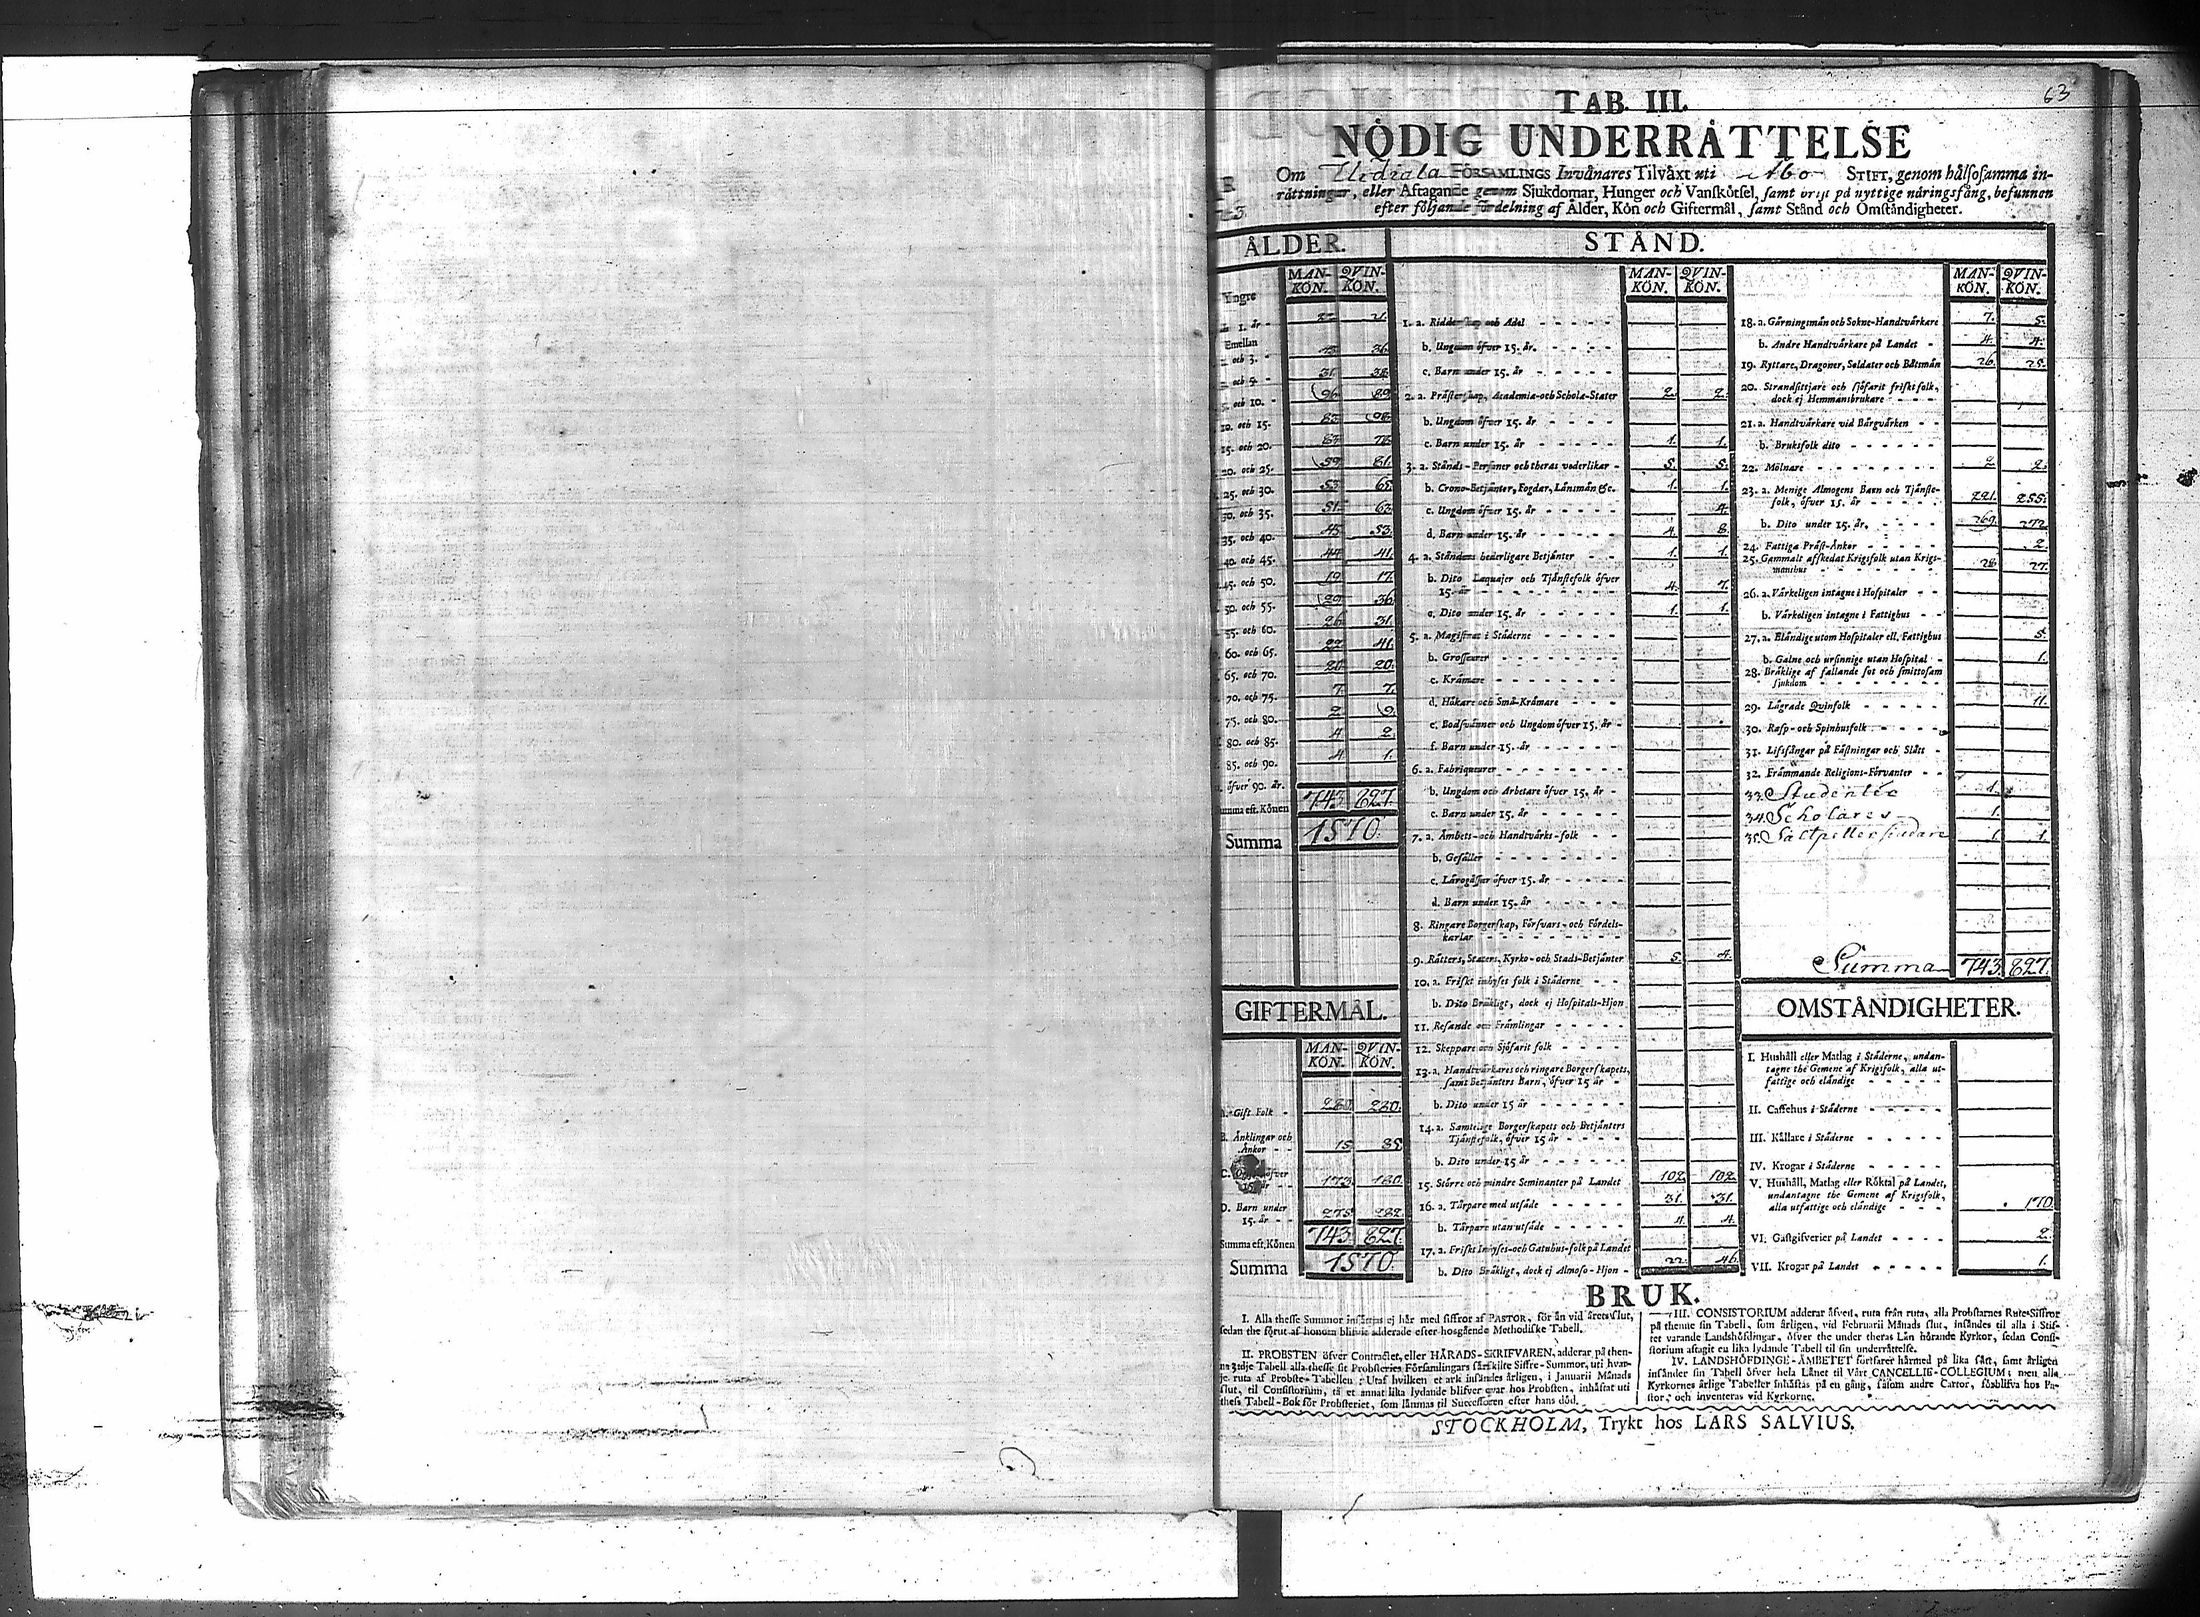 63
TAB. III.
NÖDIG UNDERRÅTTELSE
Om FÖRSAMLINGS Invånares Tilvåxt uti Åbo STIFT, genom hålsosamma in-
råttningar, eller Aftagande genom Sjukdomar, Hunger och Vanskötsel, samt brist på nyttige näringsfång, befunnen
efter följande fördelning af Ålder, Kön och Giftermål, samt Stånd och Omståndigheter.
ÅLDER.
MAN-KÖN. QVIN-KÖN.
Yngre
1. år 21.
Emellan
och 3. 36.
och 5. 31. 38.
5. och 10. 96 89
10. och 15. 83 98
15. och 20. 83 78
20. och 25. 59 81.
25. och 30. 53 65.
30. och 35. 51. 63
35. och 40. 45 53.
40. och 45. 44 41.
45. och 50. 19 17.
50. och 55. 29 36.
55. och 60. 26 31.
60. och 65. 22 41.
65. och 70. 20 20.
70. och 75. 7. 7.
75. och 80. 2 9.
80. och 85. 4 2.
85. och 90. 4 1.
öfver 90. år.
Summa eft. Könen 743 827.
Summa 1570.
GIFTERMÅL.
MAN-KÖN. QVIN-KÖN.
A. Gift Folk 280 280.
B. Änklingar och
Änkor 15 85
C. öfver
15. år 173 180.
D. Barn under
15. år 275 282.
Summa eft. Könen 743 827.
Summa 1570.
STÅND.
MAN-KÖN. QVIN-KÖN.
1. a. Ridderskap och Adel
b. Ungdom öfver 15. år.
c. Barn under 15. år
2. a. Pråsterskap, Academiæ-och Scholæ-Stater 2. 2.
b. Ungdom öfver 15. år
c. Barn under 15. år 1. 1.
3. a. Stånds-Personer och theras vederlikar 5. 5.
b. Crono-Betjånter, Fogdar, Länsmån &c. 1. 1.
c. Ungdom öfver 15. år 4.
d. Barn under 15. år 4. 8.
4. a. Ståndens bederligare Betjånter 1. 1.
b. Dito Laquajer och Tjånstefolk öfver
15. år 4. 7.
c. Dito under 15. år 1. 1.
5. a. Magistrat i Städerne
b. Grosseurer
c. Krämare
d. Hökare och Små-Krämare
e. Bodsvånner och Ungdom öfver 15. år
f. Barn under 15. år
6. a. Fabriqueurer
b. Ungdom och Arbetare öfver 15. år
c. Barn under 15. år
7. a. Åmbets-och Handtvårks-folk
b. Gesåller
c. Lårogåsser öfver 15. år
d. Barn under 15. år
8. Ringare Borgerskap, Försvars-och Fördels-
karlar
9. Råtters, Statens, Kyrko-och Stads-Betjånter 5. 4.
10. a. Friskt inhyses folk i Städerne
b. Dito Bråkligt, dock ej Hospitals-Hjon
11. Resande och Fråmlingar
12. Skeppare och Sjöfarit folk
13. a. Handtvårkares och ringare Borgerskapets,
samt Betjånters Barn, öfver 15 år
b. Dito under 15 år
14. a. Samtelige Borgerskapets och Betjånters
Tjånstefolk, öfver 15 år
b. Dito under 15 år
15. Större och mindre Seminanter på Landet 102. 102.
16. a. Torpare med utsåde 31. 31.
b. Torpare utan utsåde 4. 4.
17. a. Friskt Inhyses-och Gatuhus-folk på Landet
b. Dito Bråkligt, dock ej Almoso-Hjon 22. 46.
MAN-KÖN. QVIN-KÖN.
18. a. Gårningsmån och Sokne-Handtvårkare 7. 5.
b. Andre Handtvårkare på Landet 4. 4.
19. Ryttare, Dragoner, Soldater och Båtsmån 26. 25.
20. Strandsittjare och sjöfarit friskt folk,
dock ej Hemmansbrukare
21. a. Handtvårkare vid Bårgvårken
b. Bruksfolk dito
22. Mölnare 2 2.
23. a. Menige Almogens Barn och Tjånste-
folk, öfver 15. år 221. 255.
b. Dito under 15. år. 269. 272
24. Fattiga Pråst-Ånkor 2.
25. Gammalt afskedat Krigsfolk utan Krigs-
manshus 28 27.
26. a. Vårkeligen intagne i Hospitaler
b. Vårkeligen intagne i Fattighus
27. a. Elåndige utom Hospitaler ell. Fattighus 5.
b. Galne och ursinnige utan Hospital 1.
28. Bråklige af fallande sot och smittosam
sjukdom
29. Lågrade Qvinfolk 11.
30. Rasp-och Spinhusfolk
31. Lifsfångar på Fåstningar och Slått
32. Fråmmande Religions-Förvanter
33. Studenter 1.
34. Scholares 1.
35. Saltpetter siudare 1. 1.
Summa 743. 827.
OMSTÅNDIGHETER.
I. Hushåll eller Matlag i Städerne, undan-
tagne the Gemene af Krigsfolk, alla ut-
fattige och elåndige
II. Caffehus i Städerne
III. Kållare i Städerne
IV. Krogar i Städerne
V. Hushåll, Matlag eller Röktal på Landet,
undantagne the Gemene af Krigsfolk,
alla utfattige och elåndige 170.
VI. Gåstgifverier på Landet 2.
VII. Krogar på Landet 1.
BRUK.
I. Alla thesse Summor insåttas ej hår med siffror af PASTOR, för ån vid årets slut,
sedan the förut af honom blifvit adderade efter hosgående Methodiske Tabell.
II. PROBSTEN öfver Contractet, eller HÅRADS-SKRIFVAREN, adderar på then-
na 3:dje Tabell alla thesse sit Probsteries Församlingars sårskilte Siffre-Summor, uti hvar-
je ruta af Probste-Tabellen; Utaf hvilken et ark insåndes årligen, i Januarii Månads
slut, til Consistorium, tå et annat lika lydande blifver qvar hos Probsten, inhåftat uti
thess Tabell-Bok för Probsteriet, som låmnas til Successoren efter hans död.
III. CONSISTORIUM adderar åfven, ruta från ruta, alla Probstarnes Rute-Siffror
på thenne sin Tabell, som årligen, vid Februarii Månads slut, insåndes til alla i Stif-
tet varande Landshöfdingar, öfver the under theras Lån hörande Kyrkor, sedan Consi-
storium aftagit en lika lydande Tabell til sin underråttelse.
IV. LANDSHÖFDINGE-ÅMBETET fortfarer hårmed på lika sått, samt årligen
insånder sin Tabell öfver hela Lånet til Vårt CANCELLIE-COLLEGIUM; men alla
Kyrkornes årlige Tabeller inhåftas på en gång, såsom andre Cartor, som blifva hos Pa-
stor, och inventeras vid Kyrkorne.
STOCKHOLM, Trykt hos LARS SALVIUS.